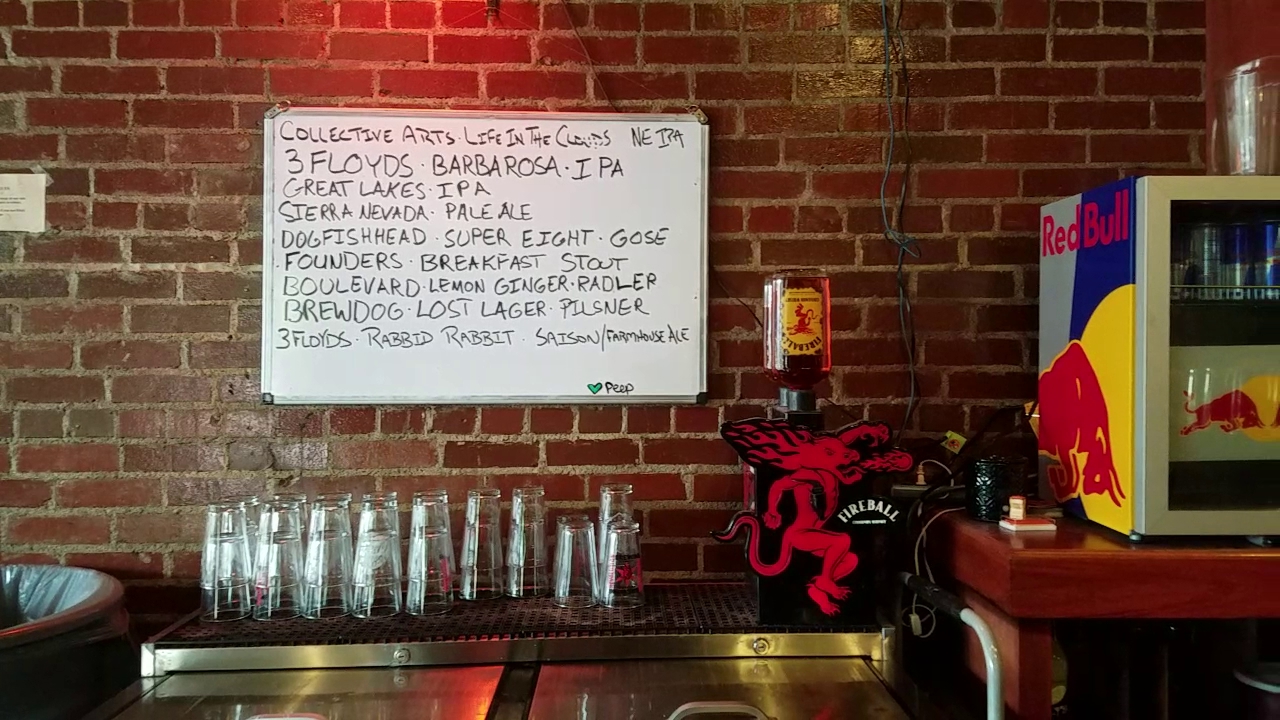 COLLECTIVE ARTS · LIFE IN THE CLOUDS NE IPA
3 FLOYDS · BARBAROSA · IPA
GREAT LAKES · IPA
SIERRA NEVADA · PALE ALE
DOGFISHHEAD · SUPER EIGHT · GOSE
FOUNDERS · BREAKFAST STOUT
BOULEVARD · LEMON GINGER · RADLER
BREWDOG · LOST LAGER · PILSNER
3 FLOYDS · RABBID RABBIT · SAISON/FARMHOUSE ALE
Peep
Red Bull
FIREBALL
FIREBALL